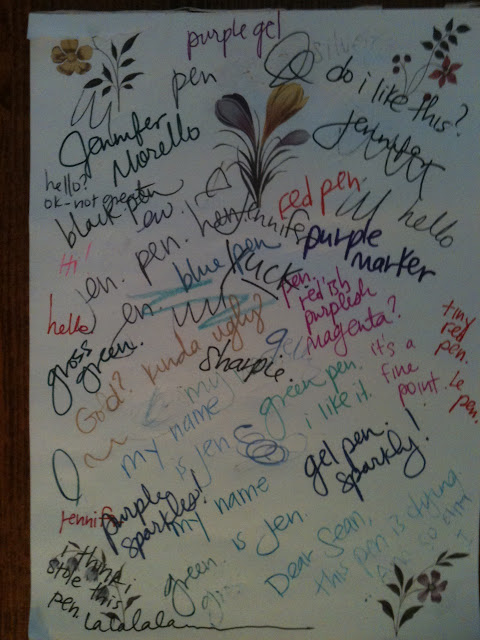 purple gel
silver
pen
do i like this?
Jennifer
Morello
jennifer
hello?
ok-not great
black pen
ow.
red pen
hello
Hi!
jen. pen. hey jennifer
purple
marker
blue pen
yuck
en.
pen.
red'ish
purplish
magenta?
hello
tiny
red
pen.
gross
green.
Gold? kinda ugly?
Sharpie.
gel
it's a
fine
point.
le
pen.
my
green pen.
i like it.
my name
is jen
gel pen.
sparkly!
jennif
purple
sparkles!
my name
green. is jen.
Dear Sean,
this pen is dying
And so am
I
i think i
stole this
pen. Lalalala